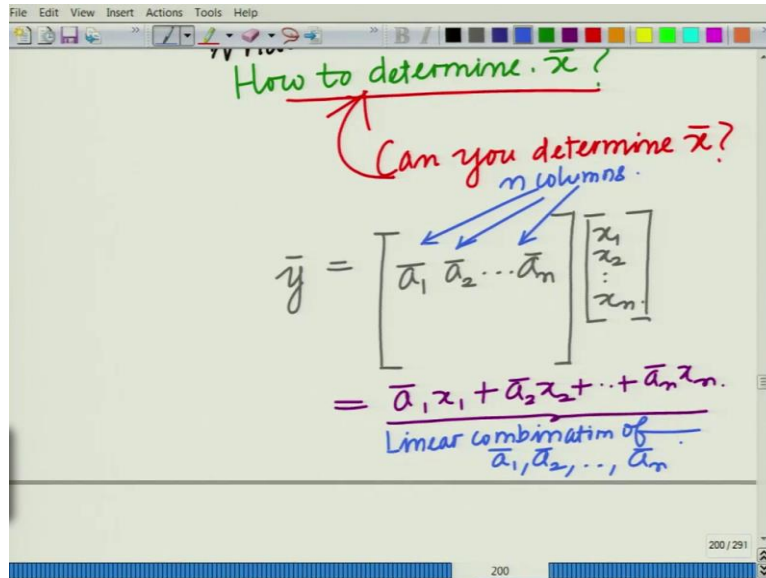 File Edit View Insert Actions Tools Help
How to determine. x̄ ?
Can you determine x̄?
n columns.
ȳ = [ā₁ ā₂ ... āₙ] [x₁ x₂ : xₙ.]
= ā₁x₁ + ā₂x₂ + ·· + āₙxₙ.
Linear combination of
ā₁, ā₂, .., āₙ
200 / 291
200